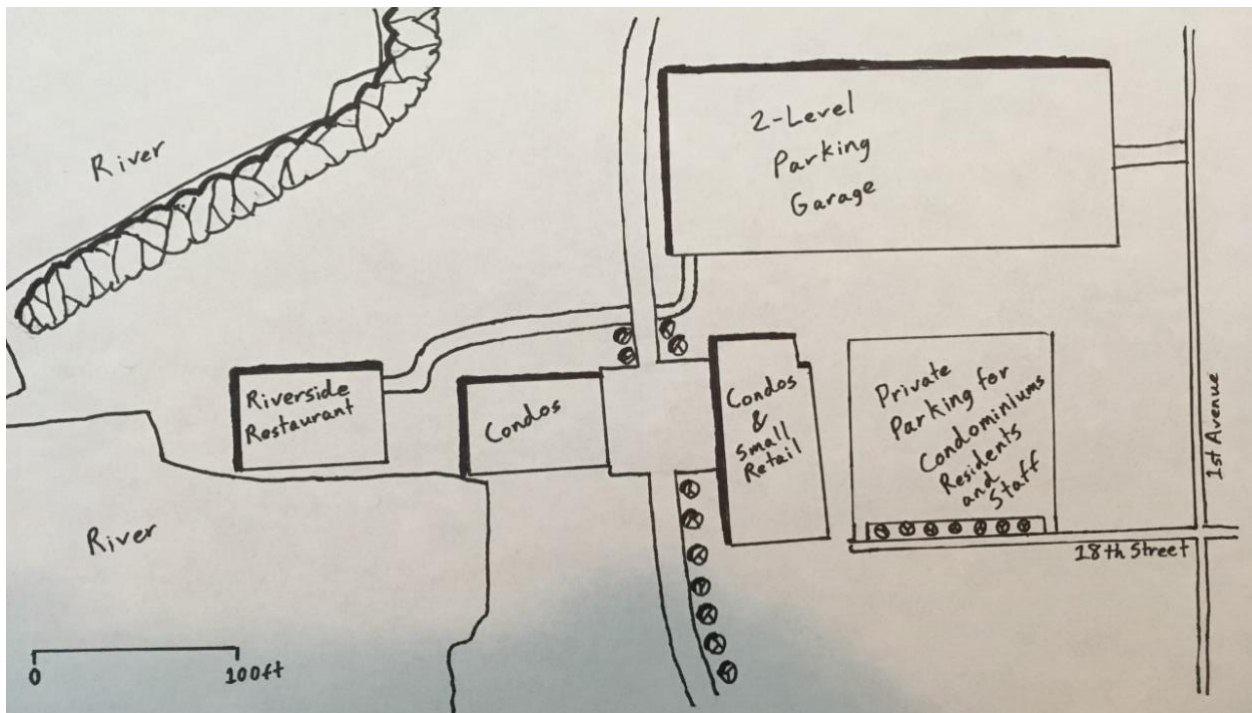 2-Level
Parking
Garage
River
Riverside
Restaurant
Condos
Condos
&
Small
Retail
Private
Parking for
Condominiums
Residents
and
Staff
1st Avenue
River
18th Street
0
100ft